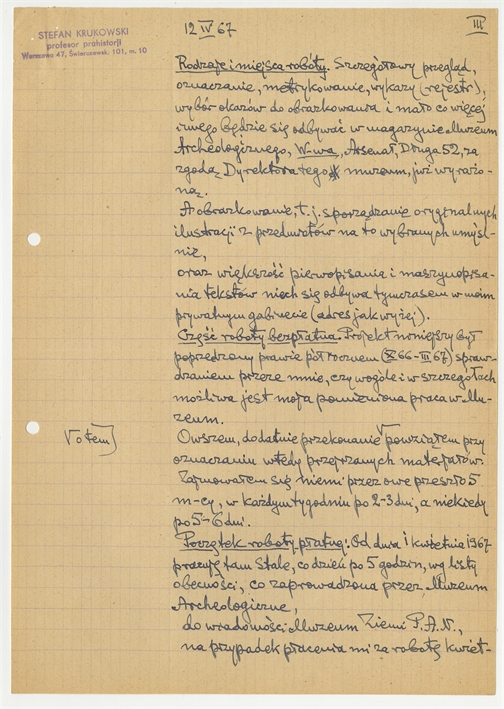 STEFAN KRUKOWSKI
profesor prehistorji
Warszawa 47, Świerczewsk. 101, m. 10
12 IV 67
III
Rodzaje i miejsca roboty. Szczegółowy przegląd,
oznaczanie, metrykowanie, wykazy (-rejestr),
wybór okazów do obrazkowania i mało co więcej
innego będzie się odbywać w magazynie Muzeum
Archeologicznego, W-wa, Arsenał, Długa 52, za
zgodą Dyrektora tego muzeum, już wyrażo-
ną.
A obrazkowanie, t. j. sporządzanie oryginalnych
ilustracji z przedmiotów na to wybranych umyśl-
nie,
oraz większość pierwopisania i maszynopisa-
nia tekstów niech się odbywa tymczasem w moim
prywatnym gabinecie (adres jak wyżej).
Część roboty bezpłatna. Projekt niniejszy był
poprzedzony prawie półroczem (X 66-III 67) spraw-
dzaniem przeze mnie, czy wogóle i w szczegółach
możliwa jest moja pomieniona praca w Mu-
zeum.
V o tem
Owszem, dodatnie przekonanie V powziąłem przy
oznaczaniu wtedy przejrzanych materjałów.
Zajmowałem się niemi przez owe przeszło 5
m-cy, w każdym tygodniu po 2-3 dni, a niekiedy
po 5-6 dni.
Początek roboty płatnej. Od dnia 1 kwietnia 1967
pracuję tam stale, co dzień po 5 godzin, wg listy
obecności, co zaprowadzona przez Muzeum
Archeologiczne,
do wiadomości Muzeum Ziemi P.A.N.,
na przypadek płacenia mi za robotę kwiet-